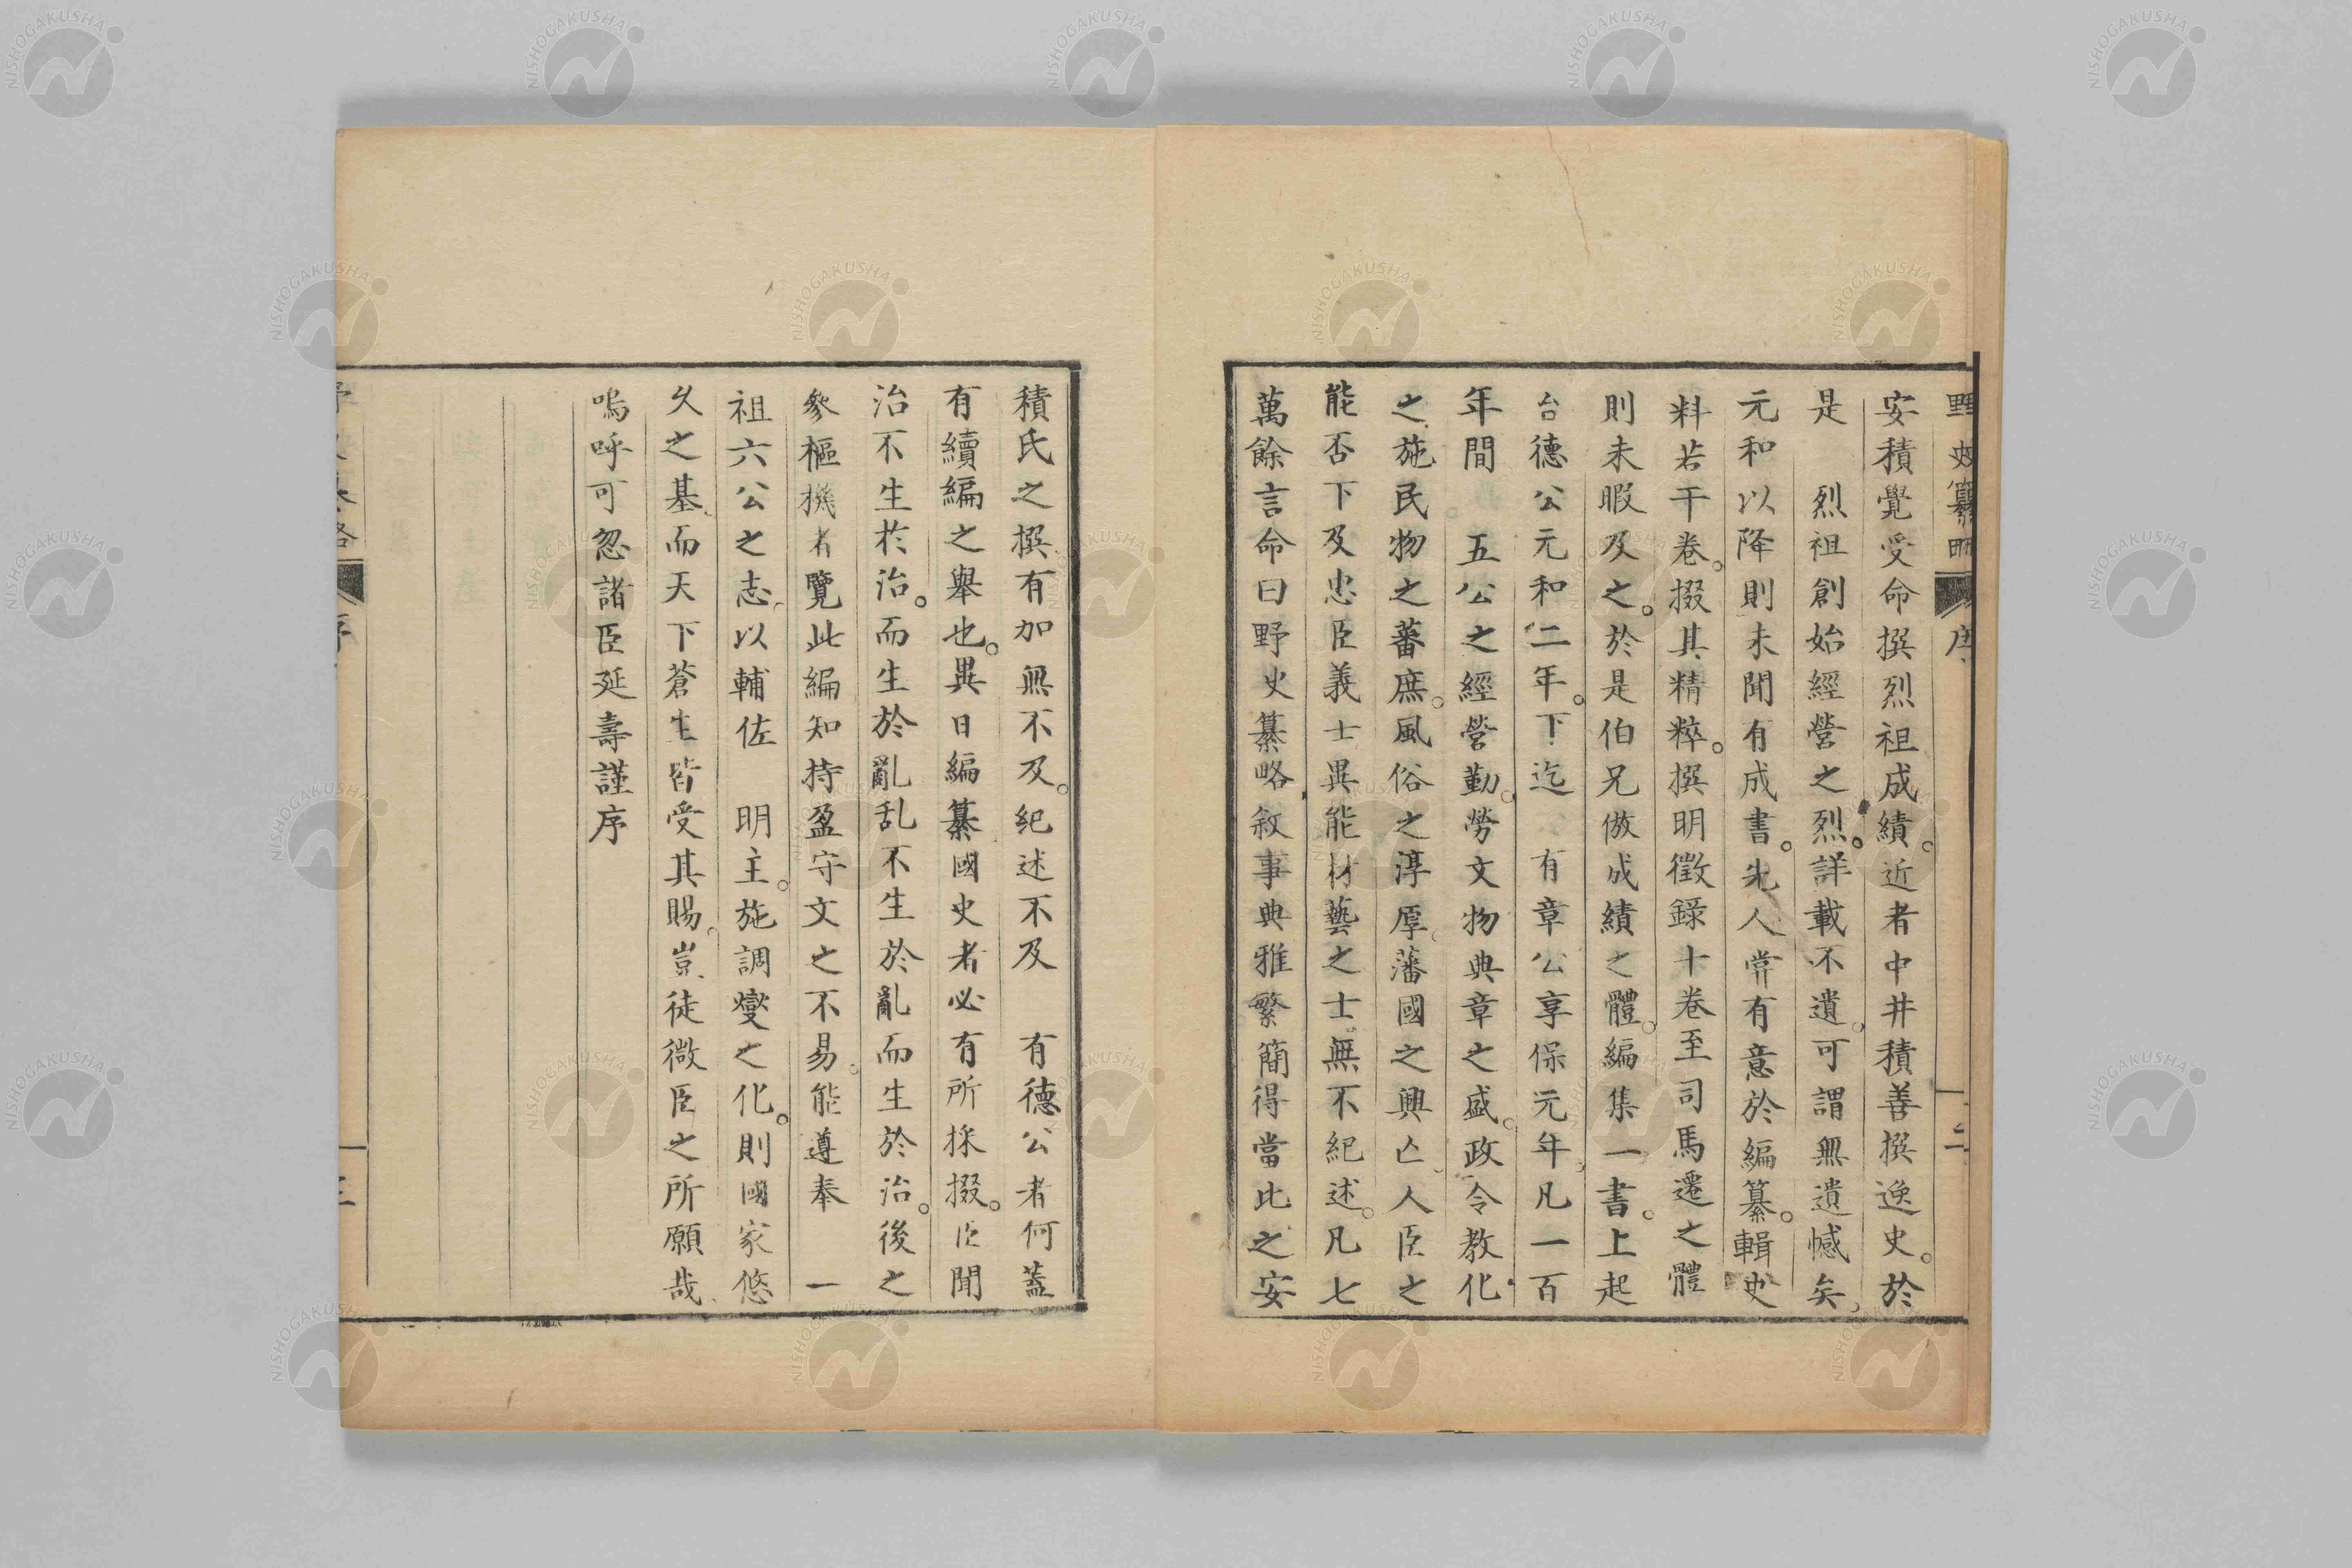 野史纂略 序 二
安積覺受命撰烈祖成績。近者中井積善撰逸史。於
是 烈祖創始經營之烈。詳載不遺。可謂無遺憾矣。
元和以降則未聞有成書。先人嘗有意於編纂。輯史
料若干卷。掇其精粹。撰明徵錄十卷至司馬遷之體
則未暇及之。於是伯兄倣成績之體。編集一書。上起
台德公元和二年。下迄 有章公享保元年。凡一百
年間 五公之經營勤勞文物典章之盛。政令教化
之施民物之蕃庶。風俗之淳厚。藩國之興亡。人臣之
能否下及忠臣義士異能材藝之士無不紀述。凡七
萬餘言命曰野史纂略敘事典雅繁簡得當比之安
積氏之撰有加無不及。紀述不及 有德公者何蓋
有續編之舉也。異日編纂國史者必有所採掇。臣聞
治不生於治。而生於亂乱不生於亂而生於治。後之
參樞機者覽此編知持盈守文之不易。能遵奉 一
祖六公之志。以輔佐 明主。施調燮之化。則國家悠
久之基。而天下蒼生皆受其賜。豈徒微臣之所願哉
嗚呼可忽諸臣延壽謹序